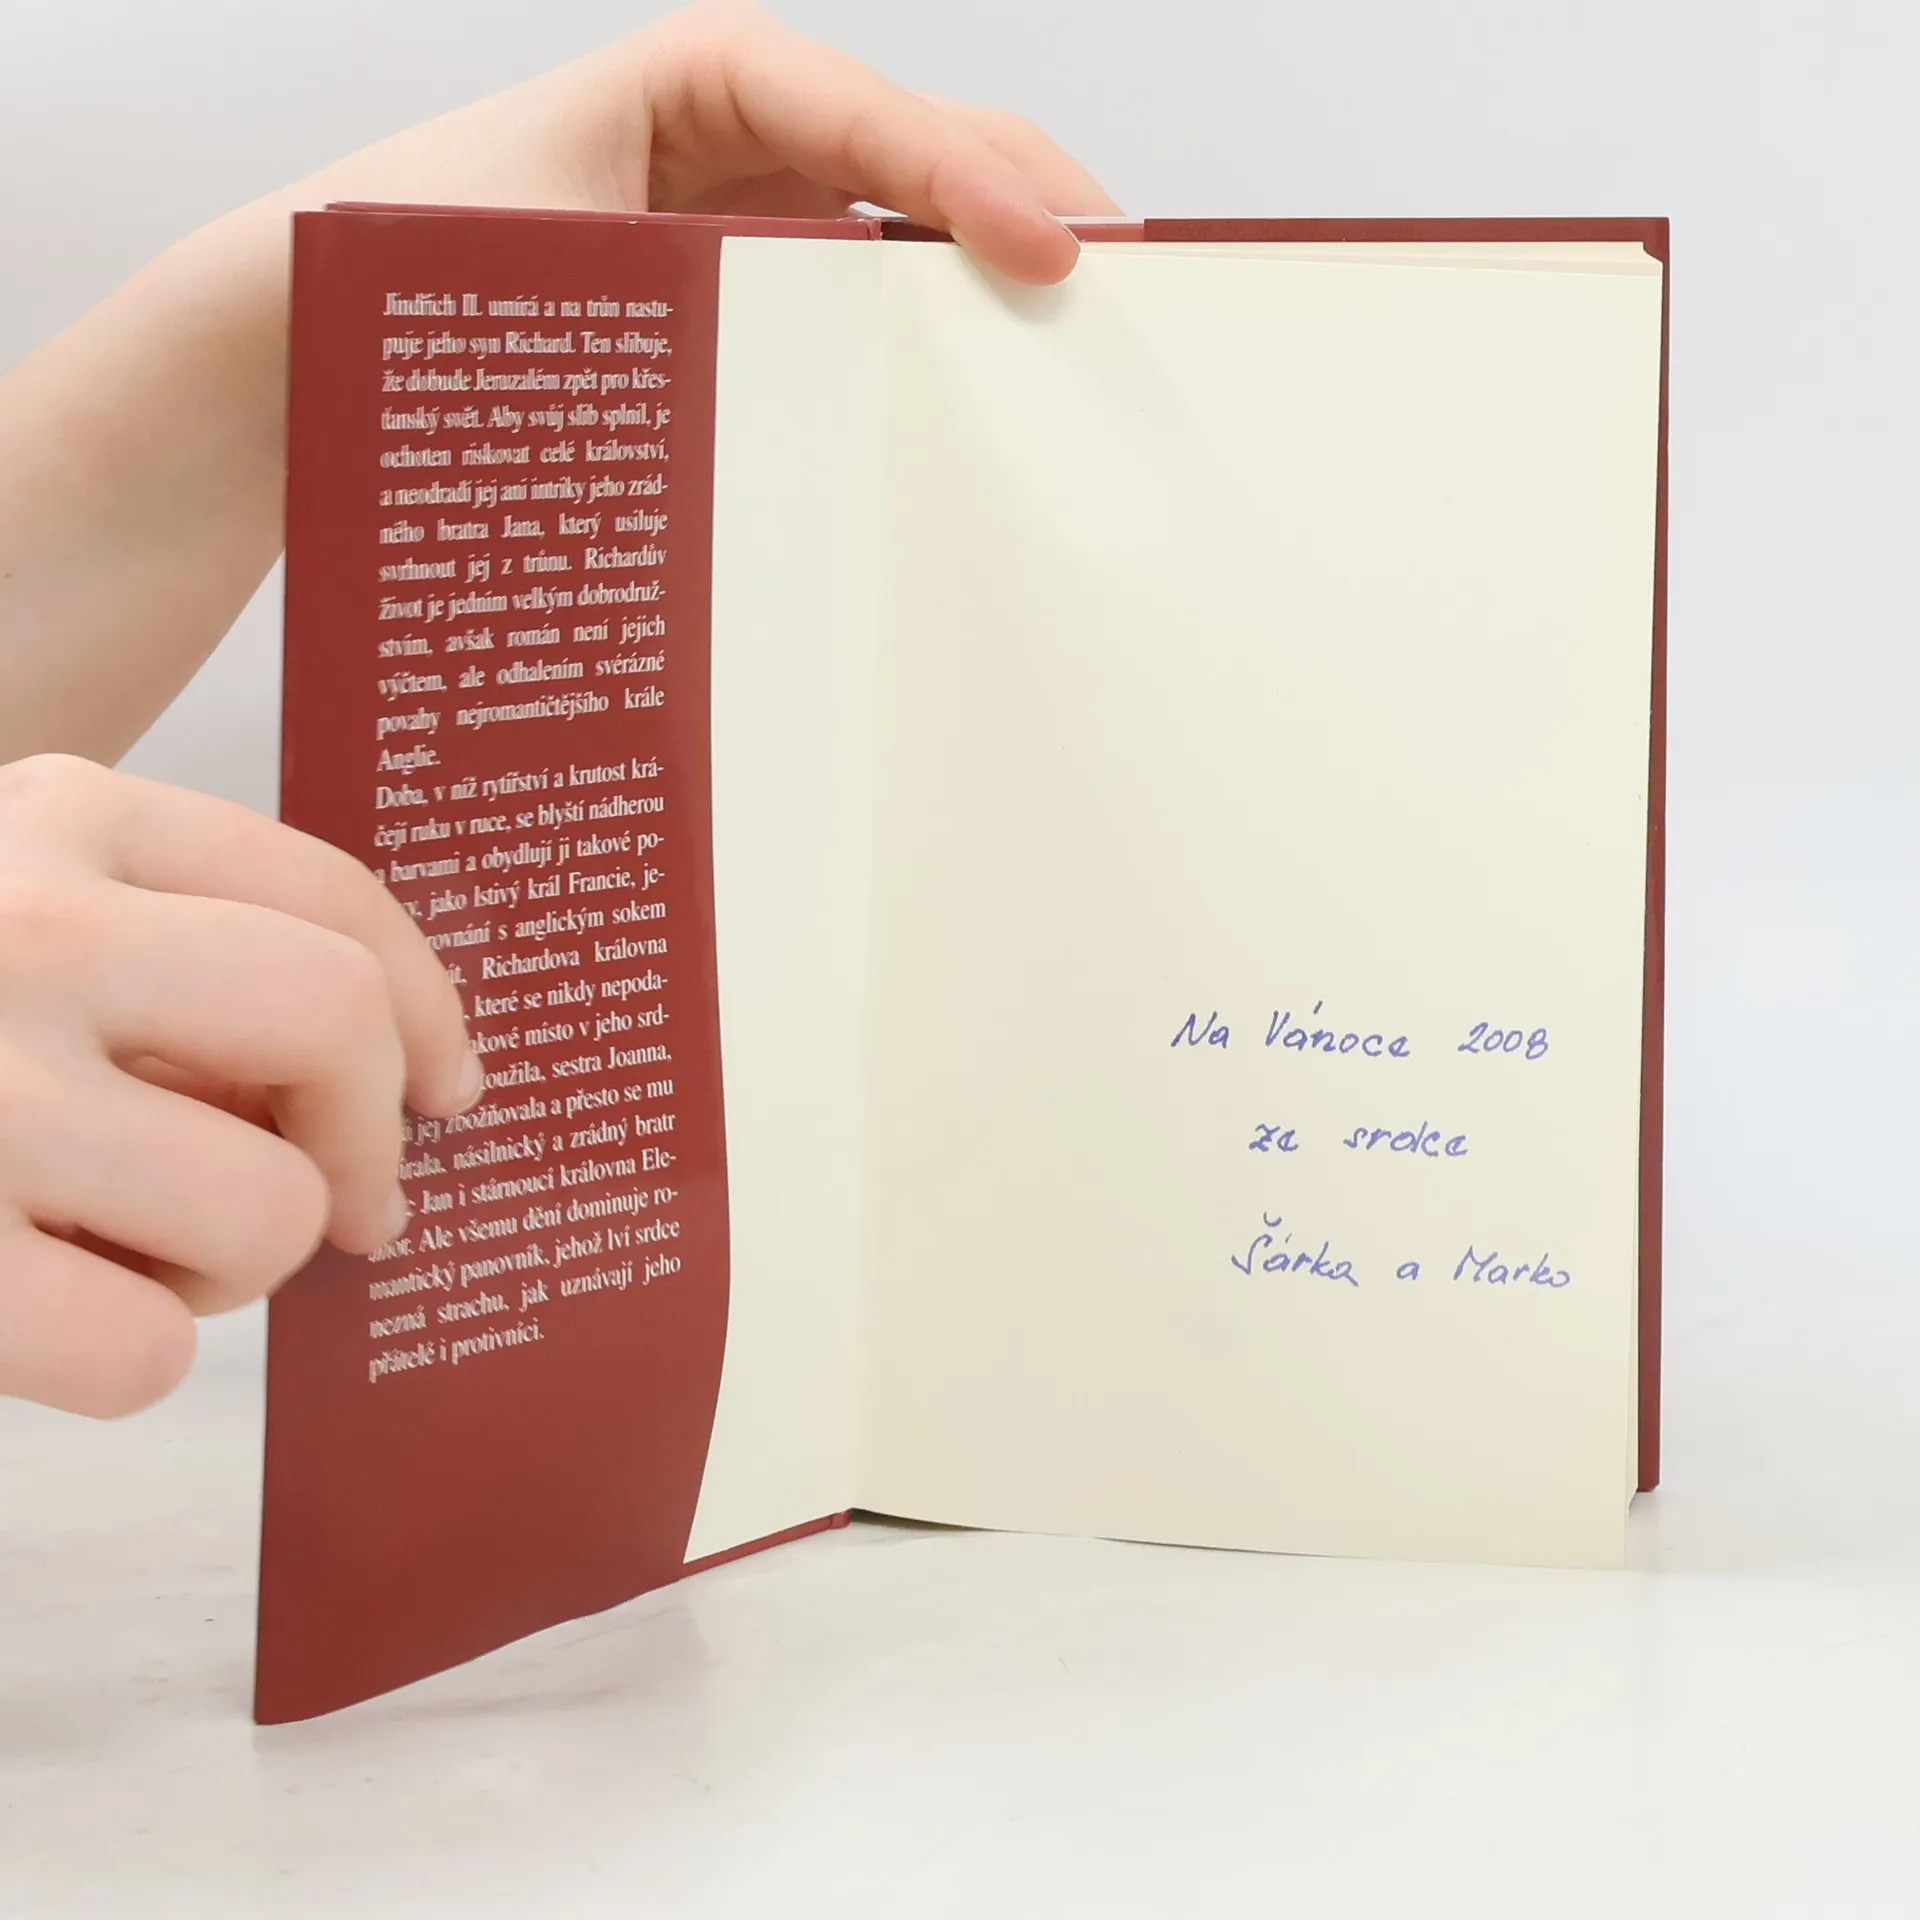 Jindřich II. umírá a na trůn nastu-
puje jeho syn Richard. Ten slibuje,
že dobude Jeruzalém zpět pro křes-
ťanský svět. Aby svůj slib splnil, je
ochoten riskovat celé království,
a neodradí jej ani intriky jeho zrád-
ného bratra Jana, který usiluje
svrhnout jej z trůnu. Richardův
život je jedním velkým dobrodruž-
stvím, avšak román není jejich
výčtem, ale odhalením svérázné
povahy nejromantičtějšího krále
Anglie.
Doba, v níž rytířství a krutost krá-
čejí ruku v ruce, se blyští nádherou
a barvami a obydlují ji takové po-
vy, jako lstivý král Francie, je-
rovnání s anglickým sokem
Richardova královna
které se nikdy nepoda-
akové místo v jeho srd-
oužila, sestra Joanna,
jej zbožňovala a přesto se mu
írala, násilnický a zrádný bratr
Jan i stárnoucí královna Ele-
Ale všemu dění dominuje ro-
mantický panovník, jehož lví srdce
nezná strachu, jak uznávají jeho
přátelé i protivníci.
Na Vánoce 2008
ze srdce
Šárka a Marko